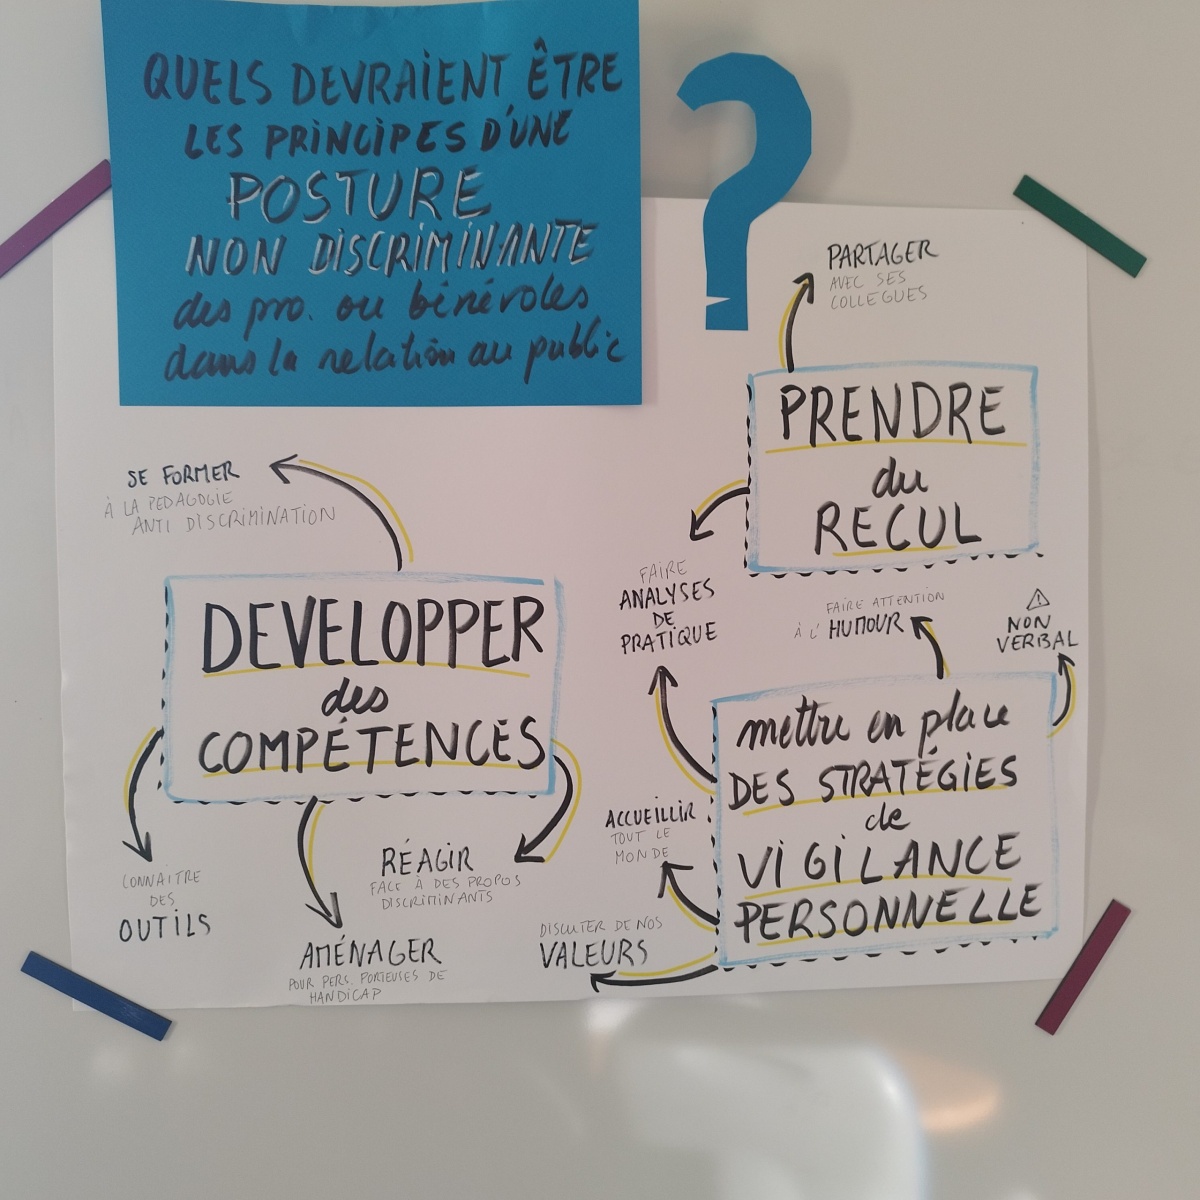 QUELS DEVRAIENT ÊTRE
LES PRINCIPES D'UNE
POSTURE
NON DISCRIMINANTE
des pro. ou bénévoles
dans la relation au public
?
PARTAGER
AVEC SES
COLLEGUES
PRENDRE
du
RECUL
FAIRE
ANALYSES
DE
PRATIQUE
SE FORMER
À LA PEDAGOGIE
ANTI DISCRIMINATION
DEVELOPPER
des
COMPÉTENCES
CONNAITRE
DES
OUTILS
AMÉNAGER
POUR PERS. PORTEUSES DE
HANDICAP
RÉAGIR
FACE À DES PROPOS
DISCRIMINANTS
FAIRE ATTENTION
À L' HUMOUR
⚠
NON
VERBAL
mettre en place
DES STRATÉGIES
de
VIGILANCE
PERSONNELLE
ACCUEILLIR
TOUT LE
MONDE
DISCUTER DE NOS
VALEURS